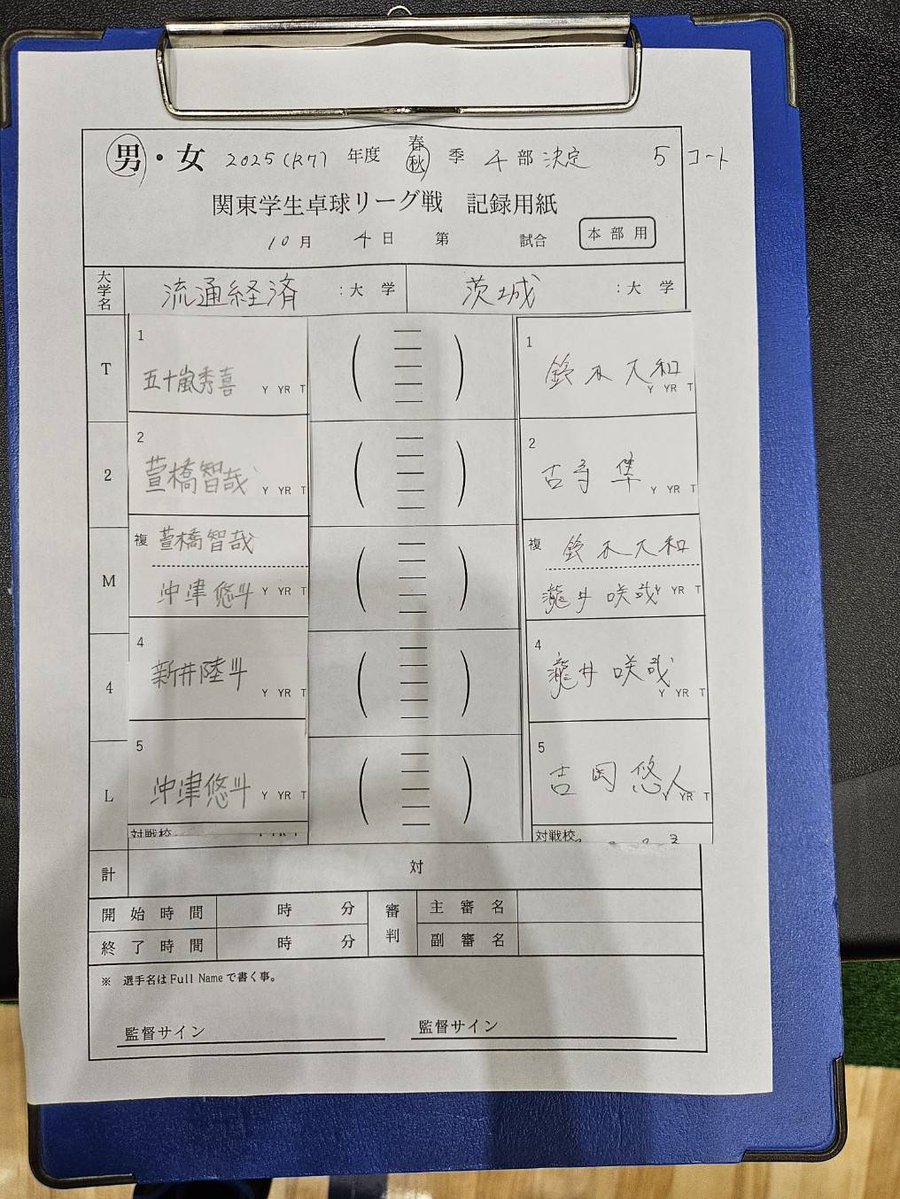 男・女 2025(R7) 年度 春 秋 季 4部 決定 5 コート
関東学生卓球リーグ戦 記録用紙
10月 4日 第 試合 本部用
大学名 流通経済 :大学 茨城 :大学
T 1 五十嵐秀喜 Y YR T ( ) 1 鈴木大和 Y YR T
2 2 萱橋智哉 Y YR T ( ) 2 古寺隼 Y YR T
M 複 萱橋智哉 ( ) 複 鈴木大和
沖津悠斗 Y YR T 瀧井咲哉 Y YR T
4 4 新井陸斗 Y YR T ( ) 4 瀧井咲哉 Y YR T
L 5 沖津悠斗 Y YR T ( ) 5 吉岡悠人 Y YR T
対戦校 対戦校
計 対
開始時間 時 分 審判 主審名
終了時間 時 分 副審名
※ 選手名はFull Nameで書く事。
監督サイン 監督サイン